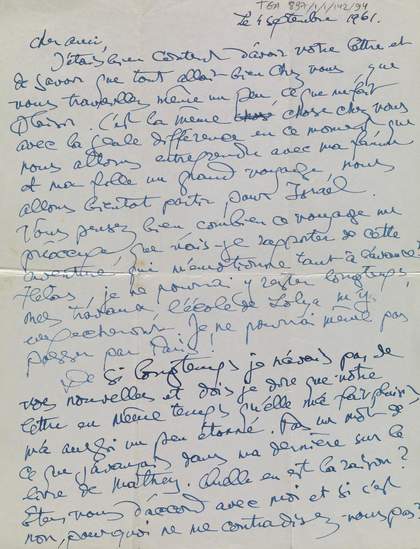 TGA 897/1/1/142/94
le 4 septembre 1961.
cher ami,
J'étais bien content d'avoir votre lettre et
de savoir que tout allait bien chez vous que
vous travaillez même un peu ce que me fait
plaisir. C'est la même chose chez nous
avec la seule différence en ce moment que
nous allons entreprendre avec ma femme
et ma fille un grand voyage, nous
allons bientôt partir pour Israël.
Vous pensez bien combien ce voyage me
préoccupe, que vais-je rapporter de cette
aventure, qui m'émotionne tant à l'avance?
Hélas, je ne pourrai y rester longtemps,
mes travaux, l'école de m'y
empêcheront. Je ne pourrai même pas
passer par Paris.
De si longtemps je n'avais pas de
vos nouvelles et dois je dire que votre
lettre en même temps qu'elle m'a fait plaisir
m'a aussi un peu étonné. Pas un mot de
ce que j'avançais dans ma dernière sur le
livre de Mathey. Quelle en est la raison?
Êtes vous d'accord avec moi et si c'est
non, pourquoi ne me contradisez-vous pas?